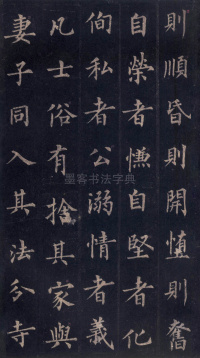 則順昏則開慎則奮
自榮者慊自堅者化
徇私者公溺情者義
凡士俗有捨其家與
妻子同入其法兮寺
墨客书法字典